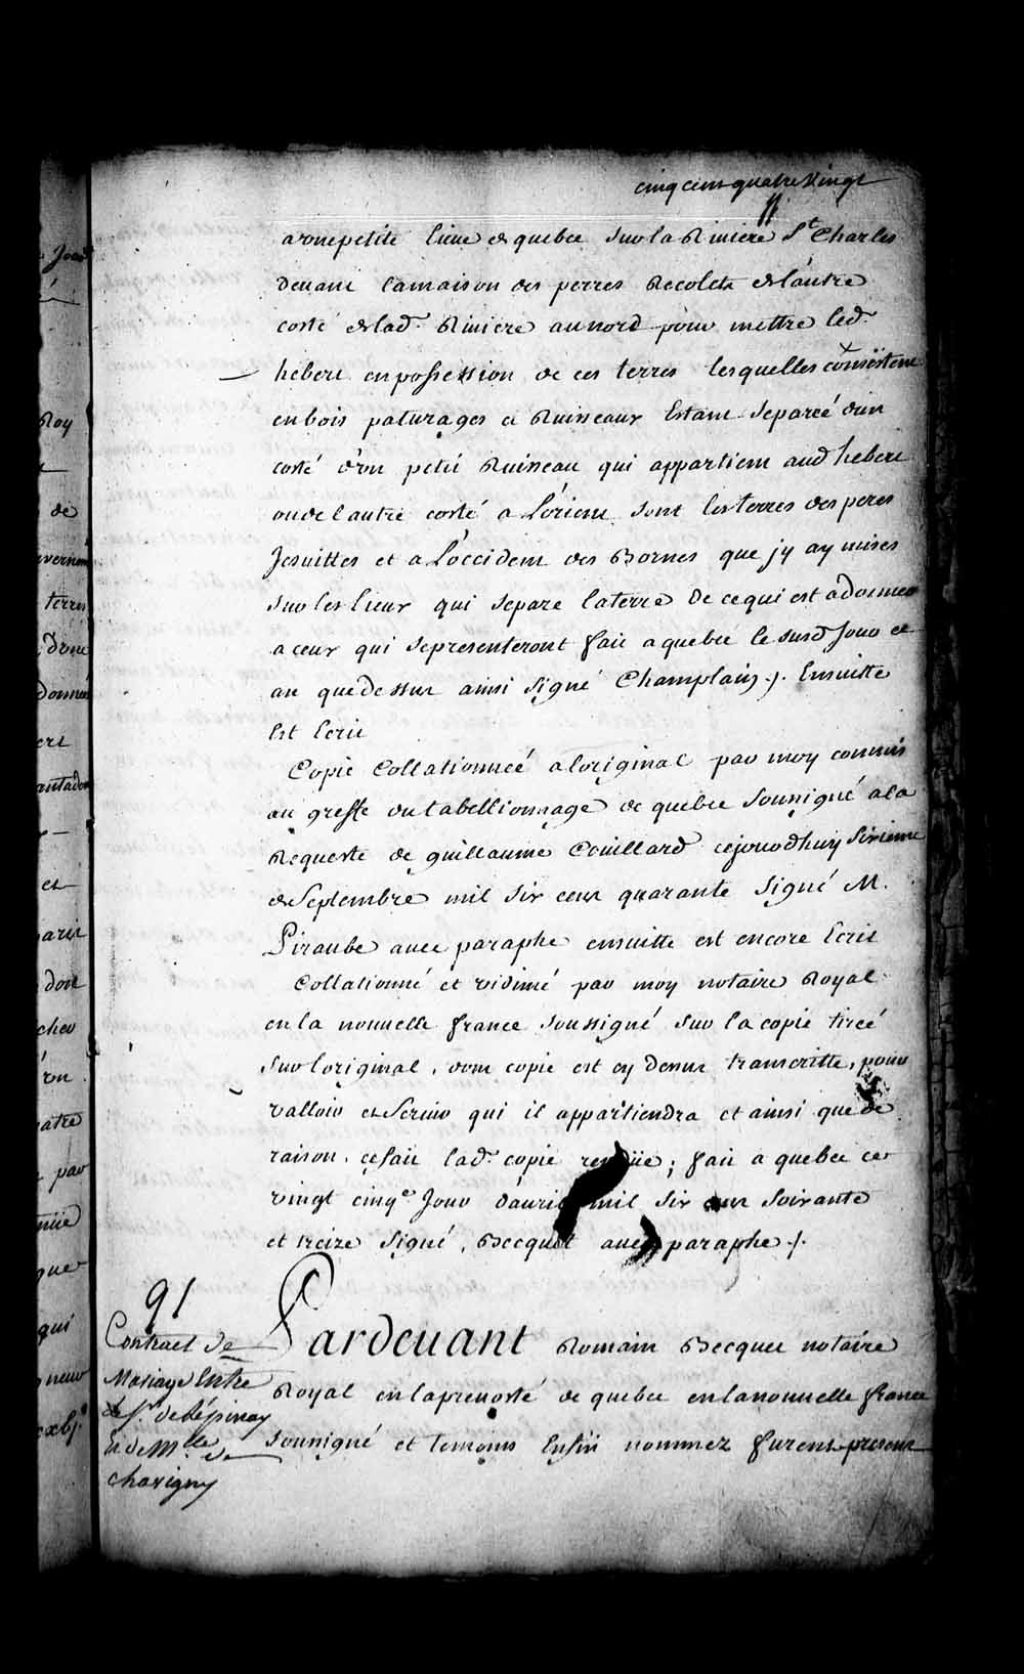 cinq cens quatre Vingt
a vne petite lieue de quebec sur la Riuiere St Charles
deuant la maison des perres Recolets de l'autre
costé de lad. Riuiere au nord pour mettre led.
hebert en possession de ces terres lesquelles consistent
en bois paturages et Ruisseaux Estant separeé d'un
costé d'vn petit Ruisseau qui appartient aud hebert
ou de l'autre costé a L'orient sont les terres des peres
Jesuittes et a L'occident des Bornes que j'y ay mises
sur les lieux qui separe la terre de ce qui est a donner
a ceux qui se presenteront fait a quebec le susd Jour et
an que dessus ainsi signé Champlain ./. Ensuitte
Est Ecrit
Copie Collationneé a l'original par moy commis
au greffe du tabellionnage de quebec soussigné a la
Requeste de guillaume Couillard cejourdhuy sixieme
de Septembre mil six cens quarante Signé M.
Piraube auec paraphe ensuitte est encore Ecrit
Collationné et vidimé par moy notaire Royal
en la nouuelle france soussigné sur la copie tireé
sur l'original, dont copie est cy dessus transcritte, pour
valloir et Seruir qui il appartiendra et ainsi que de
raison. ce fait lad. copie rendüe; fait a quebec ce
vingt cinqe Jour d'auril mil six cens soixante
et treize Signé, Becquet auec paraphe ./.
91
Contract de
Mariage Entre
le Sr. de Lépinay
Et de Mlle. de
chavigny
Pardeuant Romain Becquet notaire
Royal en la preuosté de quebec en la nouuelle france
soussigné et temoins Enfin nommez furent presens